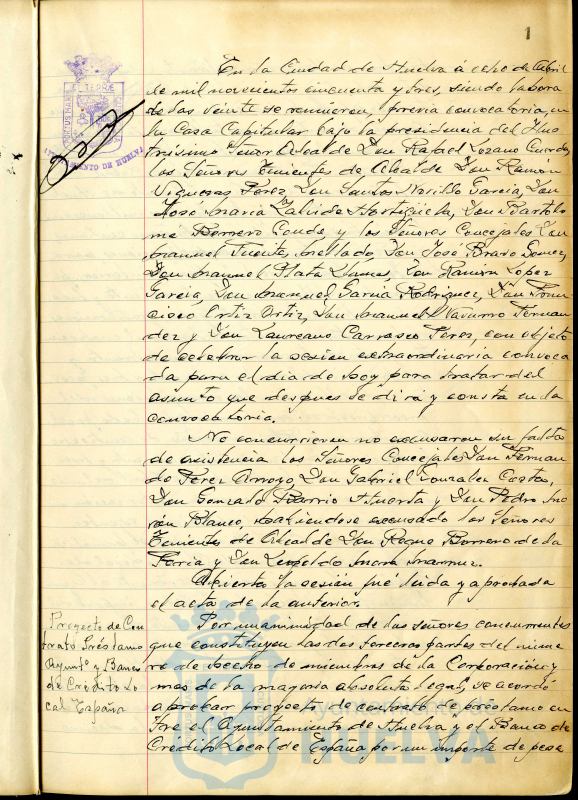 1
En la Ciudad de Huelva á ocho de Abril
de mil novecientos cincuenta y tres, siendo la hora
de las veinte se reunieron, previa convocatoria, en
la Casa Capitular bajo la presidencia del Ilus
trísimo Señor Alcalde Don Rafael Lozano Cuerda,
los Señores Tenientes de Alcalde Don Ramón
Perez, Don Santos García, Don
José María Zalvide Hortigüela, Don Bartolo
mé Borrero Conde, y los Señores Concejales Don
Manuel Fuentes Mellado, Don José Bravo Gomez,
Don Manuel Plata Llamas, Don Ramón Lopez
García, Don Manuel García Rodriguez, Don Fran
cisco Ortiz Ortiz, Don Manuel Navarro Fernan
dez y Don Laureano Carrasco Perez, con objeto
de celebrar la sesion extraordinaria convoca
da para el dia de hoy para tratar del
asunto que despues se dirá y consta en la
convocatoria.
No concurrieron no excusaron su falta
de asistencia los Señores Concejales Don Fernan
do Perez Arroyo, Don Gabriel Gonzalez Costas,
Don Gonzalo Barrio Huerta y Don Pedro
Blanco, habiendose excusado los Señores
Tenientes de Alcalde Don Roque Borrero de la
Feria y Don Leopoldo
Abierta la sesión fué leida y aprobada
el acta de la anterior.
Proyecto de Con
trato Préstamo
Ayuntº y Banco
de Crédito Lo
cal España
Por unanimidad de los señores concurrentes
que constituyen las dos terceras partes del nume
ro de hecho de miembros de la Corporación y
mas de la mayoria absoluta legal, se acordó
aprobar proyecto de contrato de préstamo en
tre el Ayuntamiento de Huelva y el Banco de
Crédito Local de España por un importe de pese
AYUNTAMIENTO DE HUELVA
HUELVA